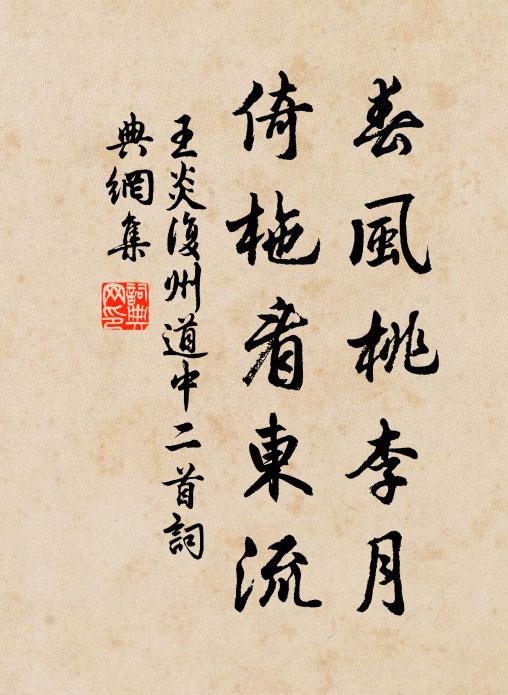 春風桃李月
倚柂看東流
王炎復州道中二首詞
典網集
詞典網印